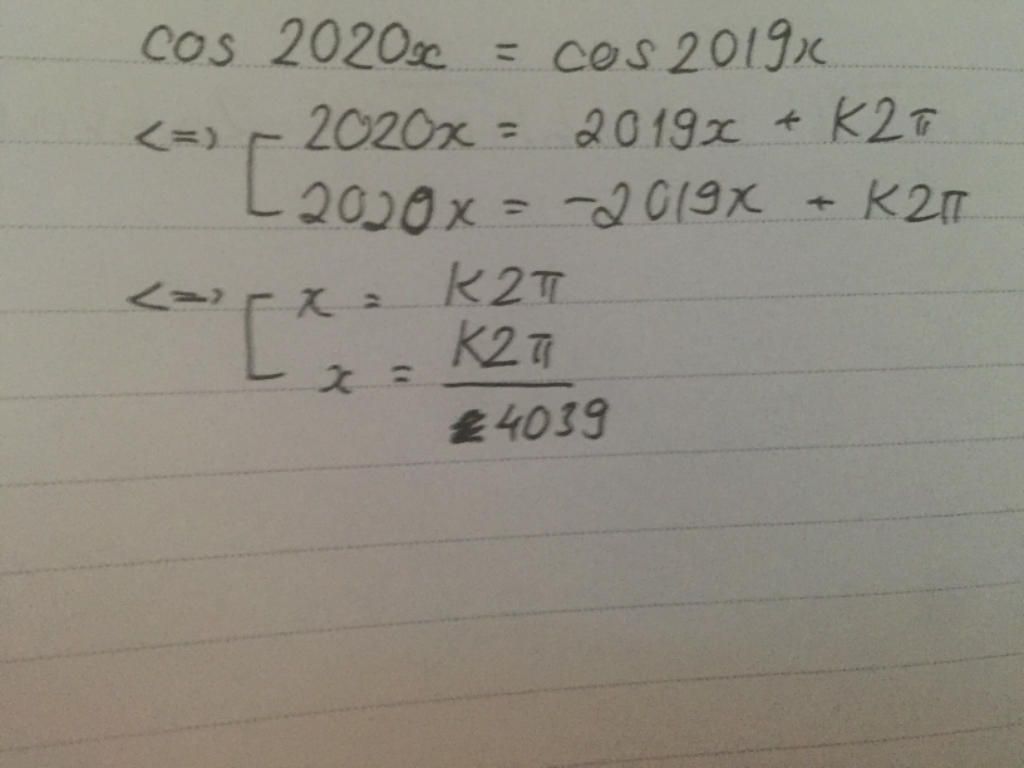 cos 2020x = cos 2019x
<=> [ 2020x = 2019x + K2π
2020x = -2019x + K2π
<=> [ x = K2π
x = K2π / 4039